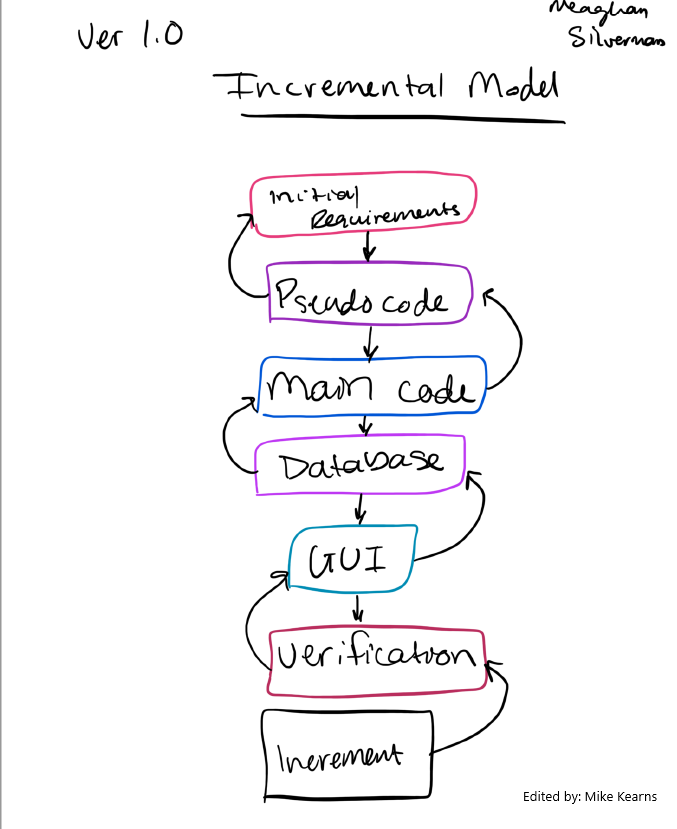 Meaghan
Ver 1.0
Silverman
Incremental Model
Initial
Requirements
Pseudocode
Main code
Database
GUI
Verification
Increment
Edited by: Mike Kearns